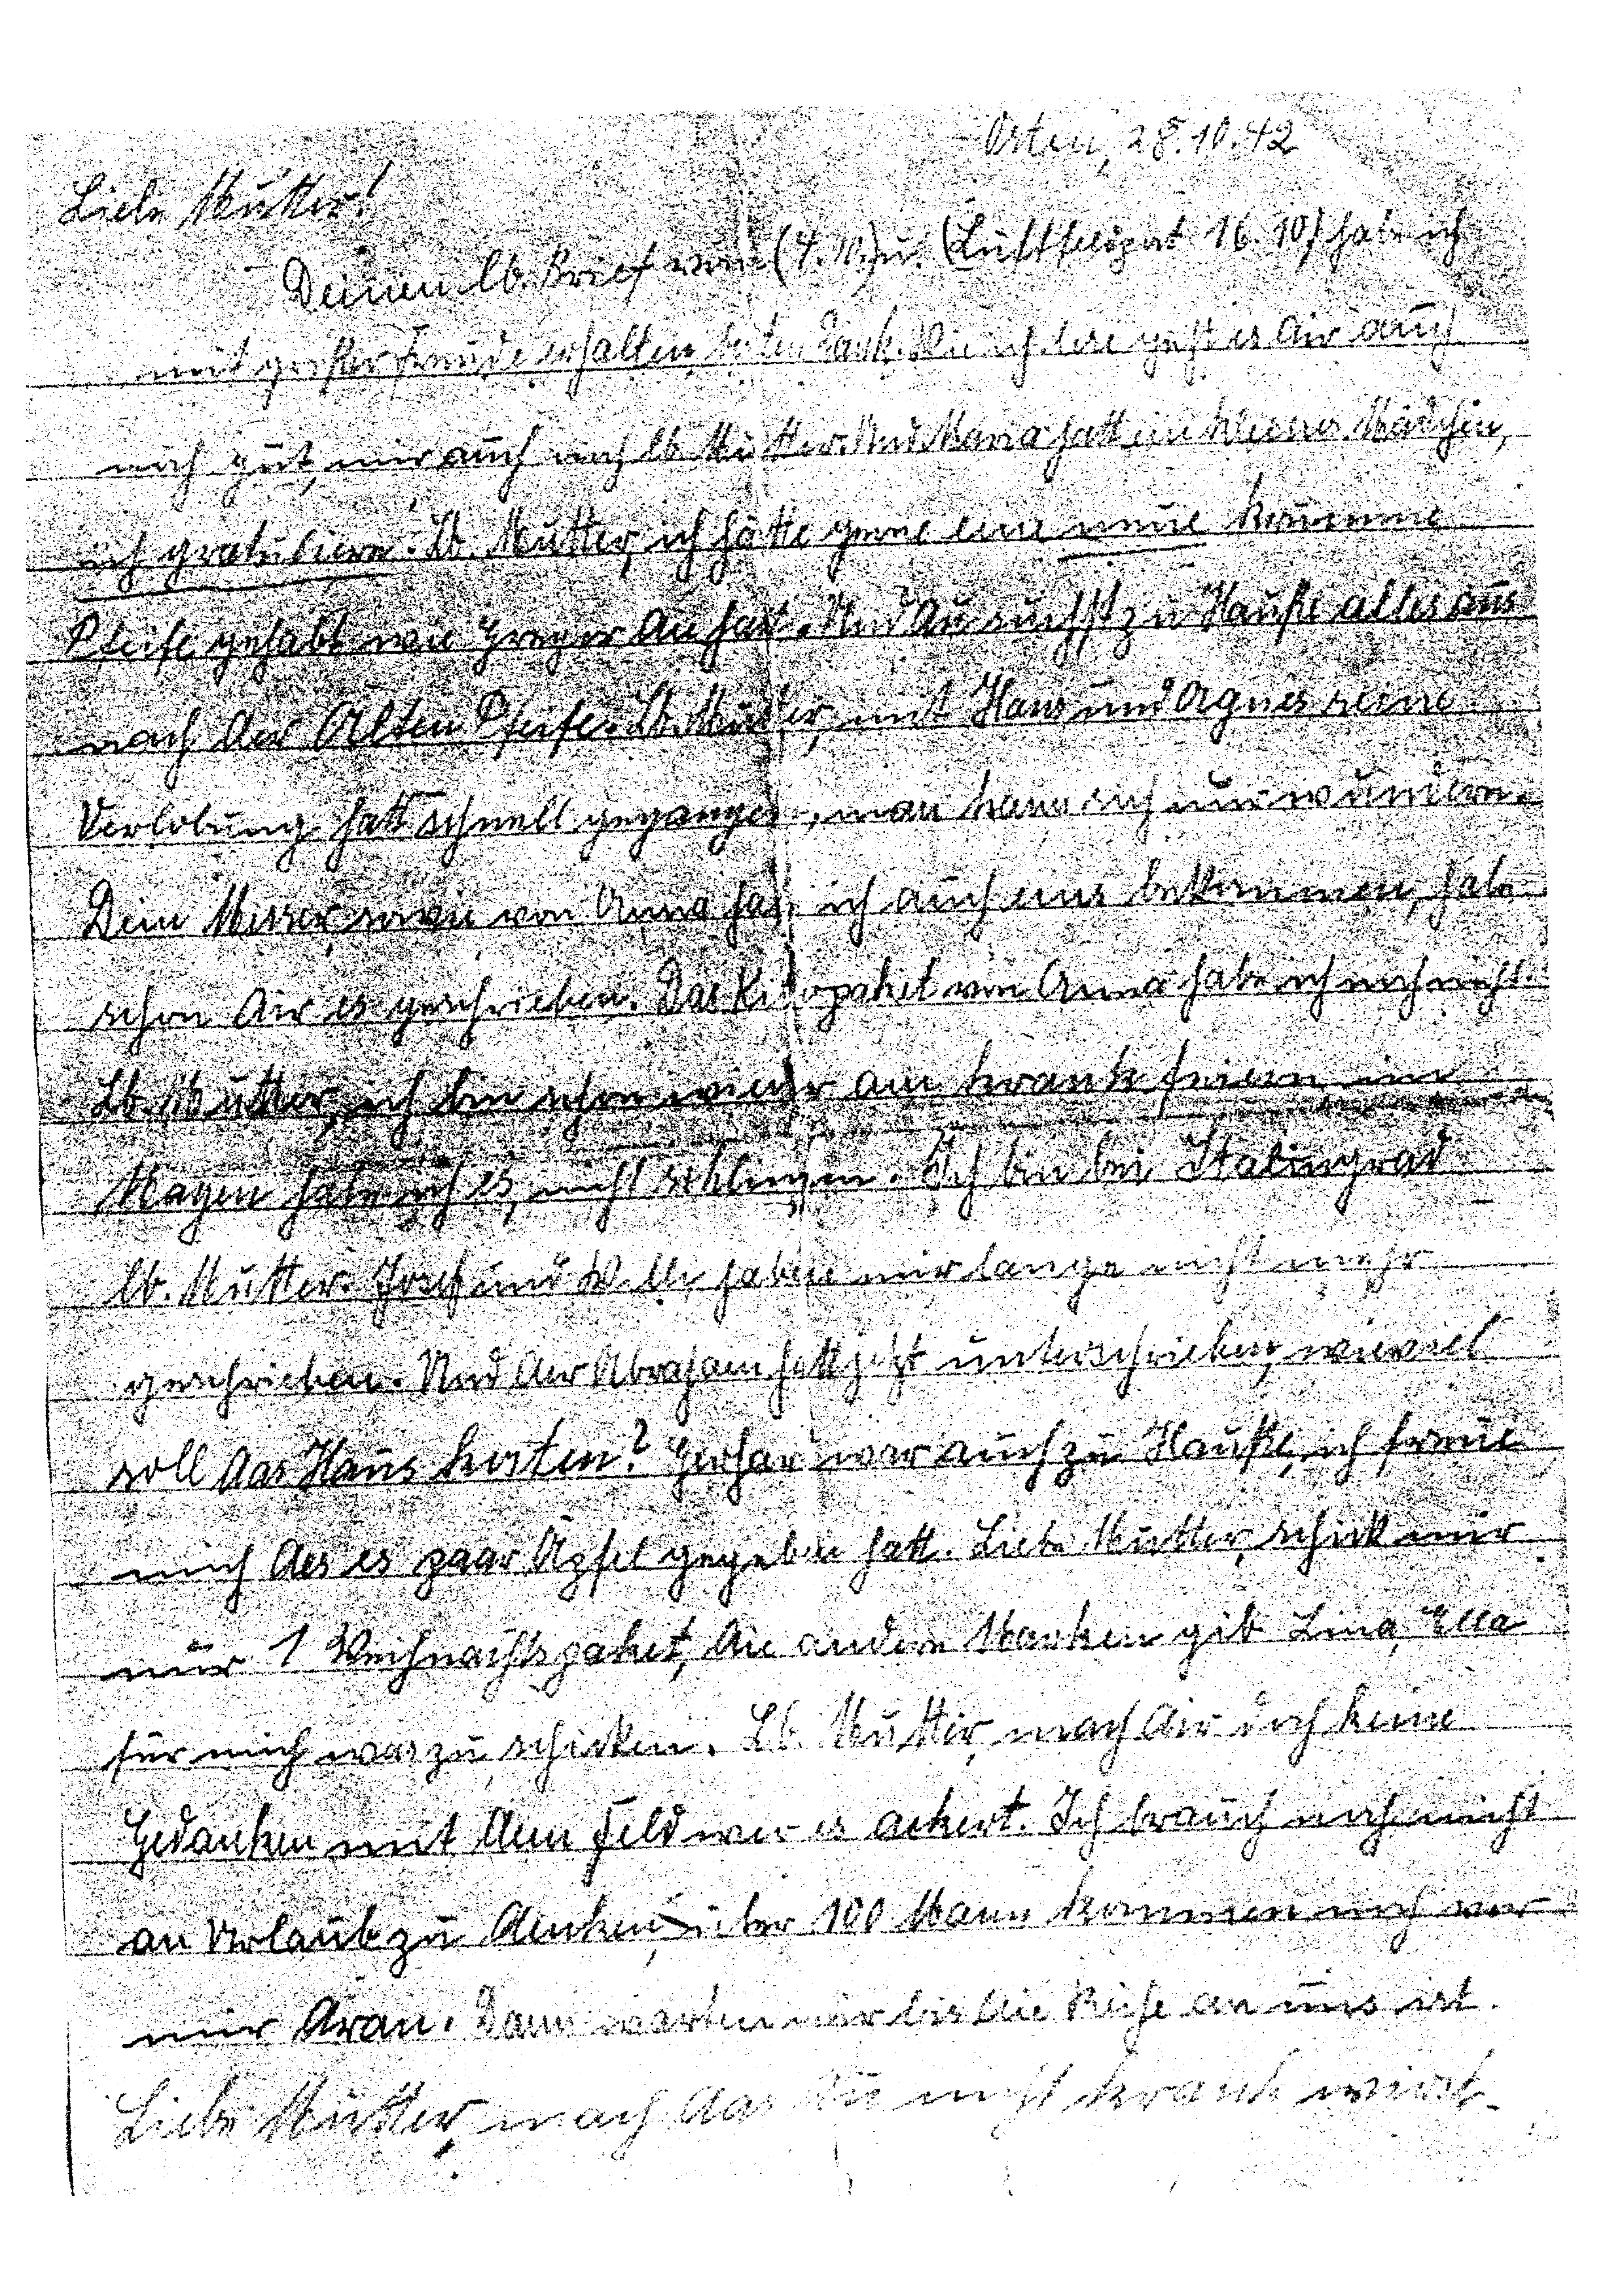 Osten, 28.10.42
Liebe Mutter!
Deinen lb. Brief vom (4.10.) u. (Luftfeldpost 16.10) habe ich
mit großer Freude erhalten, besten Dank. Wie ich lese geht es dir auch
noch gut, mir auch noch lb. Mutter. Und Maria hatt ein kleines Mädchen,
ich gratuliere. Lb. Mutter, ich hätte gerne eine neue krumme
Pfeife gehabt wie Gregor du hast. Und du suchst zu Hauße alles aus
nach der Alten Pfeife. Lb. Mutter, mit Hans und Agnes seine
Verlobung hatt schnell gegangen, man kann sich nur wundern.
Dein Messer, sowie von Anna habe ich auch eins bekommen, habe
schon dir es geschrieben. Das Kilopaket von Anna habe ich noch nicht.
Lb. Mutter, ich bin schon wieder am krank feiern, im
Magen habe ich es, nicht schlimm. Ich bin bei Stalingrad
lb. Mutter. Josef und Willi haben mir lange nicht mehr
geschrieben. Und der Abraham hatt jetzt unterschrieben, wieviel
soll das Haus kosten? Gerhard war auch zu Hauße, ich freue
mich das es paar Äpfel gegeben hatt. Liebe Mutter, schick mir
nur 1 Weihnachtspaket, die andern Marken gib Lina, Ella
für mich was zu schicken. Lb. Mutter, mach dir doch keine
Gedanken mit dem Feld wer es ackert. Ich brauch noch nicht
an Urlaub zu denken, über 100 Mann kommen noch vor
mir dran. Dann warten wir bis die Reihe an uns ist.
Liebe Mutter, mach das du nicht krank wirst.